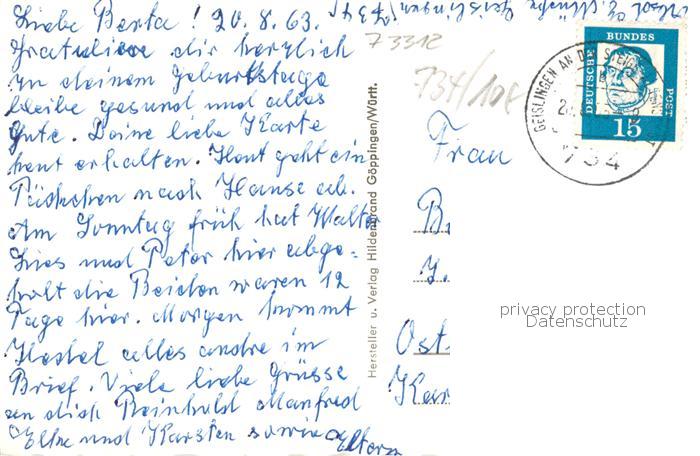 Liebe Berta! 20.8.63.
Gratuliere dir herzlich
zu deinem Geburtstage
bleibe gesund und alles
Gute. Deine liebe Karte
heut erhalten. Heut geht ein
Päckchen nach Hause ab.
Am Sonntag früh hat Walter
und Peter hier abge-
holt die Beiden waren 12
Tage hier. Morgen kommt
alles andre im
Brief. Viele liebe Grüsse
an dich Reinhold Manfred
Elke und Karsten sowie Eltern
73312
734/10f
Hersteller u. Verlag Hildenbrand Göppingen/Württ.
GEISLINGEN AN DER STEIGE
734
DEUTSCHE BUNDES POST
15
Frau
B.
Ost.
Kar
privacy protection
Datenschutz